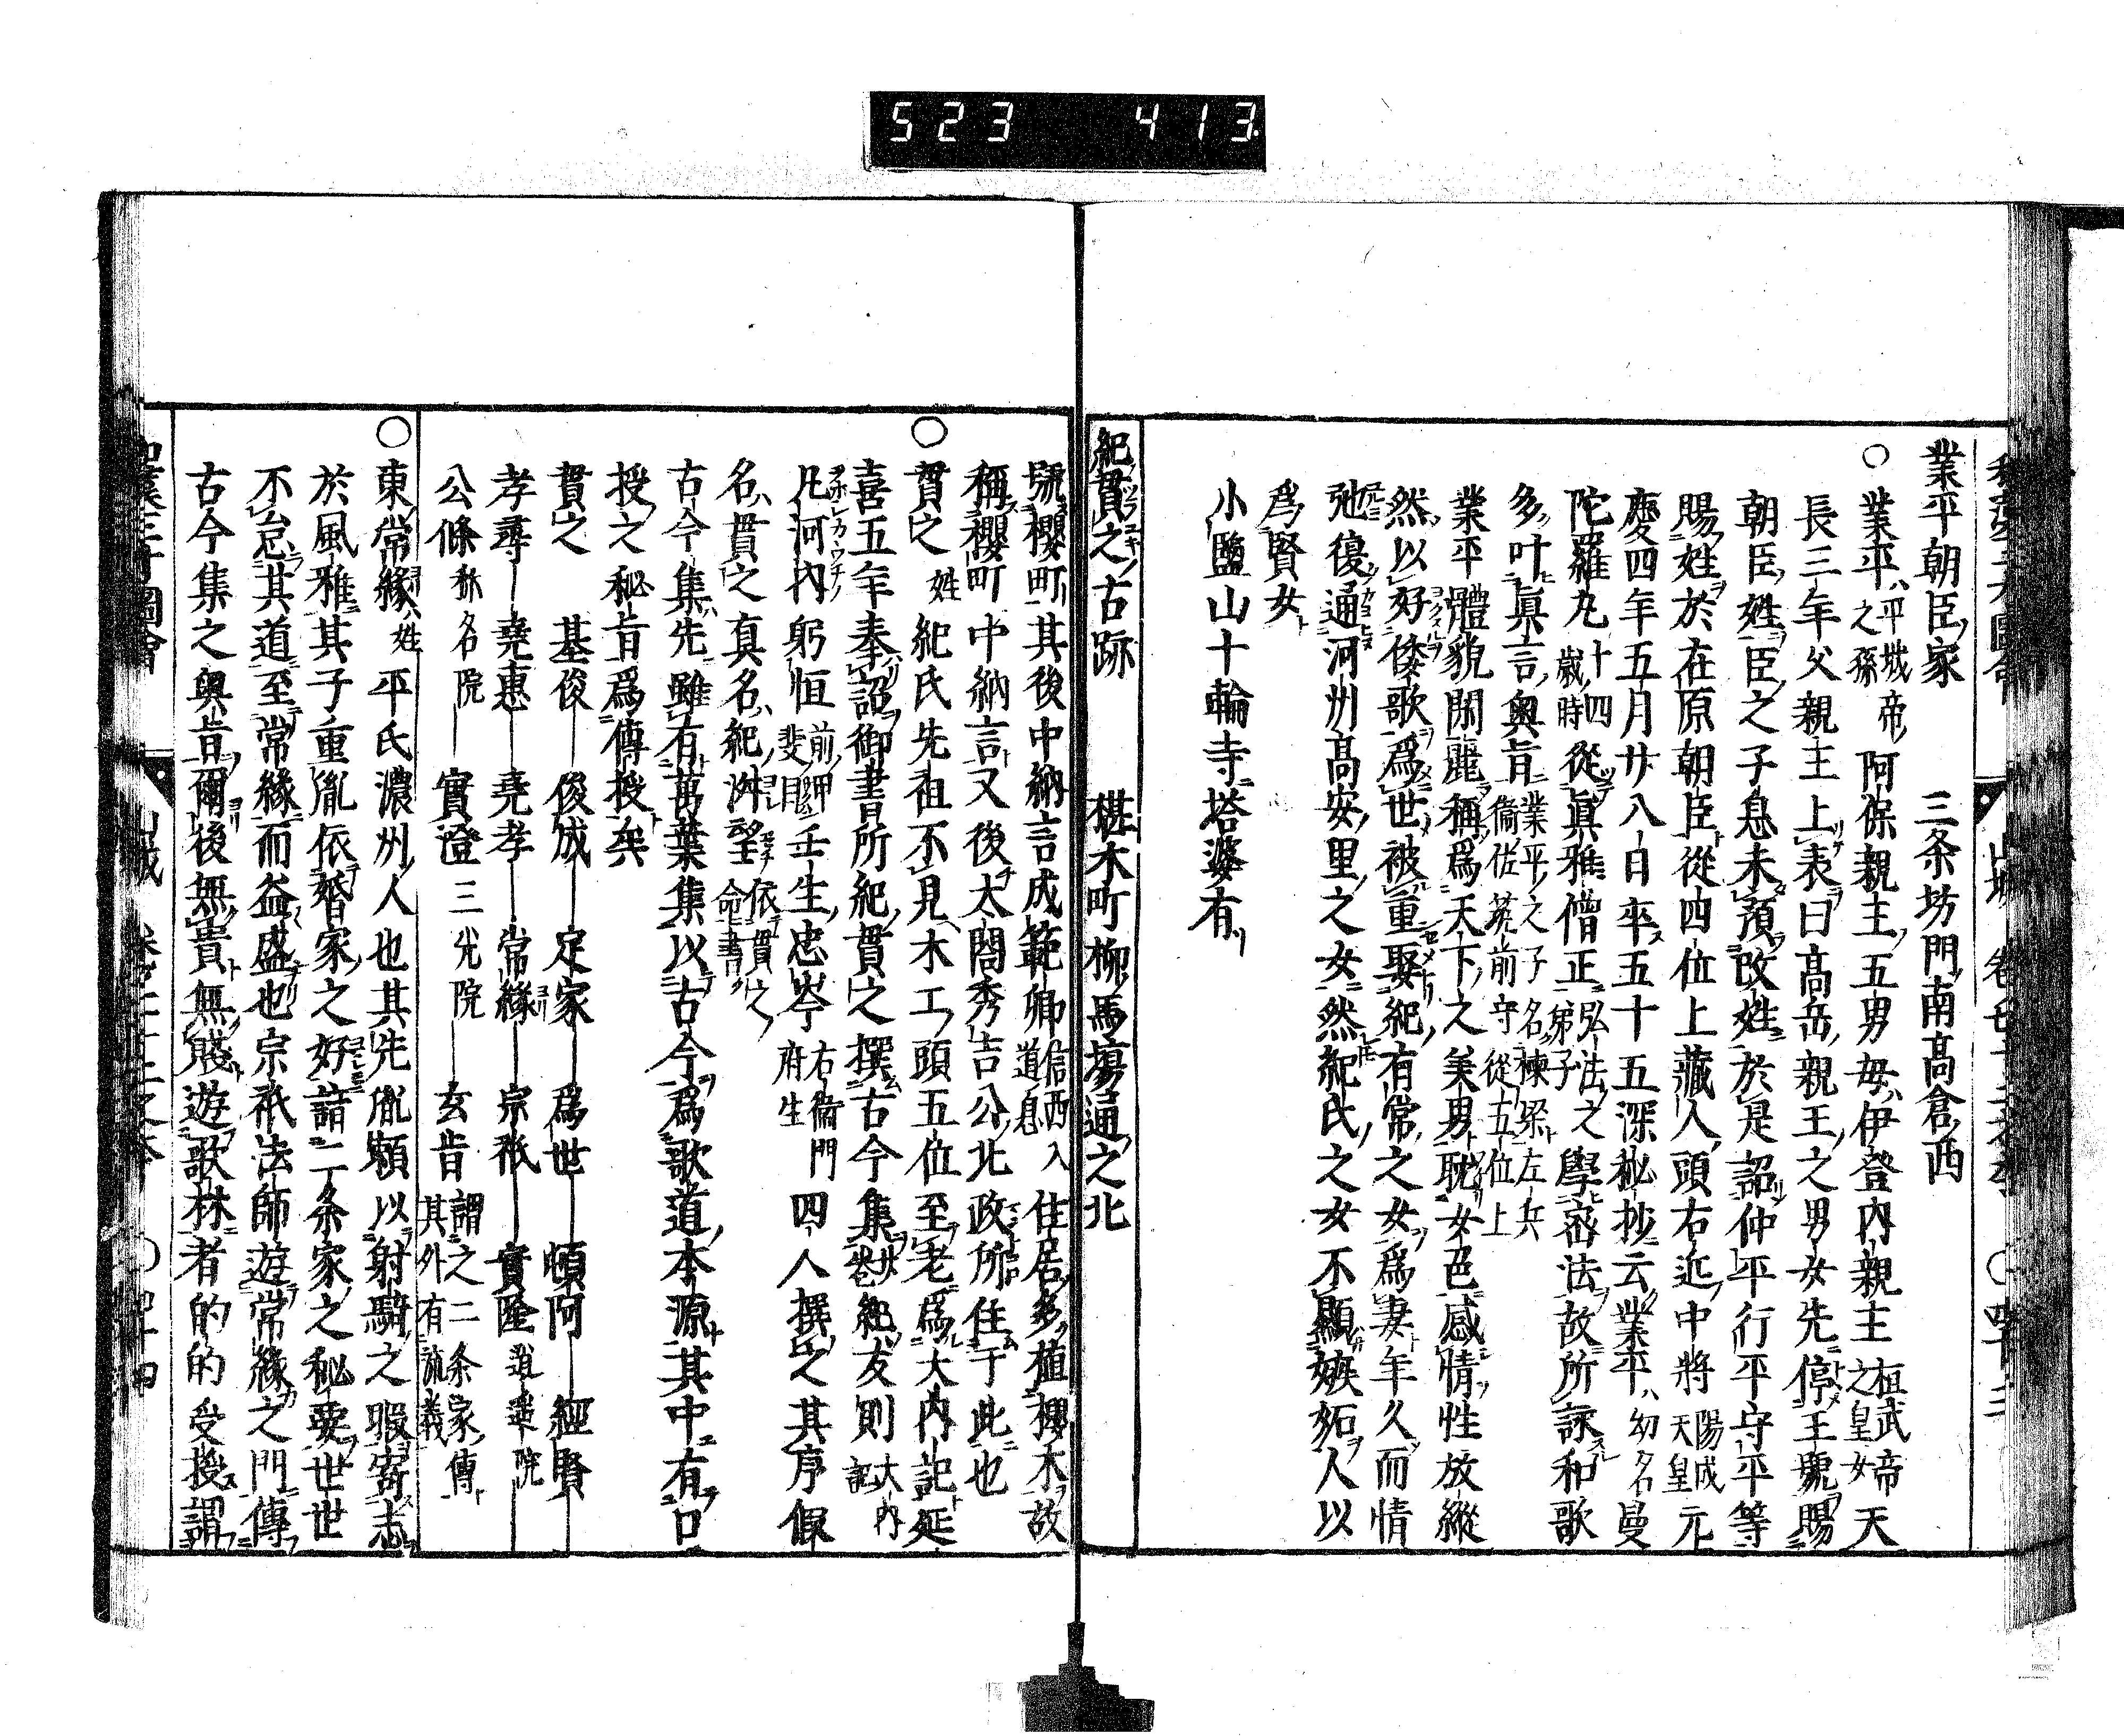 523 413.
業平朝臣家 三条坊門南高倉西
○業平平城帝之孫阿保親王五男母伊登内親王桓武帝之皇女天
長三年父親王上表曰高岳親王之男女先停王號賜
朝臣姓臣之子息未預改姓於是詔仲平行平守平等
賜姓於在原朝臣從四位上藏人頭右近中將陽成天皇元
慶四年五月廿八日卒五十五深秘抄云業平幼名曼
陀羅丸十四歲時從眞雅僧正弘法之弟子學密法故所詠和歌
多叶眞言奧旨業平之子名棟梁左兵衞佐筑前守從五位上
業平體貌閑麗稱爲天下之美男耽女色感情性放縱
然以好倭歌爲世被重娶紀有常之女爲妻年久而情
弛復通河州高安里之女然紀氏之女不顯嫉妬人以
爲賢女
小鹽山十輪寺塔婆有
紀貫之古跡 椹木町柳馬塲通之北
號櫻町其後中納言成範卿信西入道息住居多植櫻木故
稱櫻町中納言又後太閤秀吉公北政所住于此也
○貫之姓紀氏先祖不見木工頭五位至老爲大内記延
喜五年奉詔御書所紀貫之撰古今集廿卷紀友則大内記
凡河内躬恒前甲斐目壬生忠岑右衞門府生四人撰之其序假
名貫之真名紀淑望依貫之命書
古今集先雖有萬葉集以古今爲歌道本源其中有口
授之秘旨爲傳授矣
貫之 基俊 俊成 定家 爲世 頓阿 經賢
孝尋 堯惠 堯孝 常緣 宗祇 實隆逍遥院
公條称名院 實澄三光院 玄旨謂之二条家傳其外有流義
○東常緣姓平氏濃州人也其先胤頼以射騎之暇寄志
於風雅其子重胤依婚家之好詣二条家之秘要世世
不怠其道至常緣而益盛也宗祇法師遊常緣之門傳
古今集之奧旨爾後無貴無賤遊歌林者的的受授謂